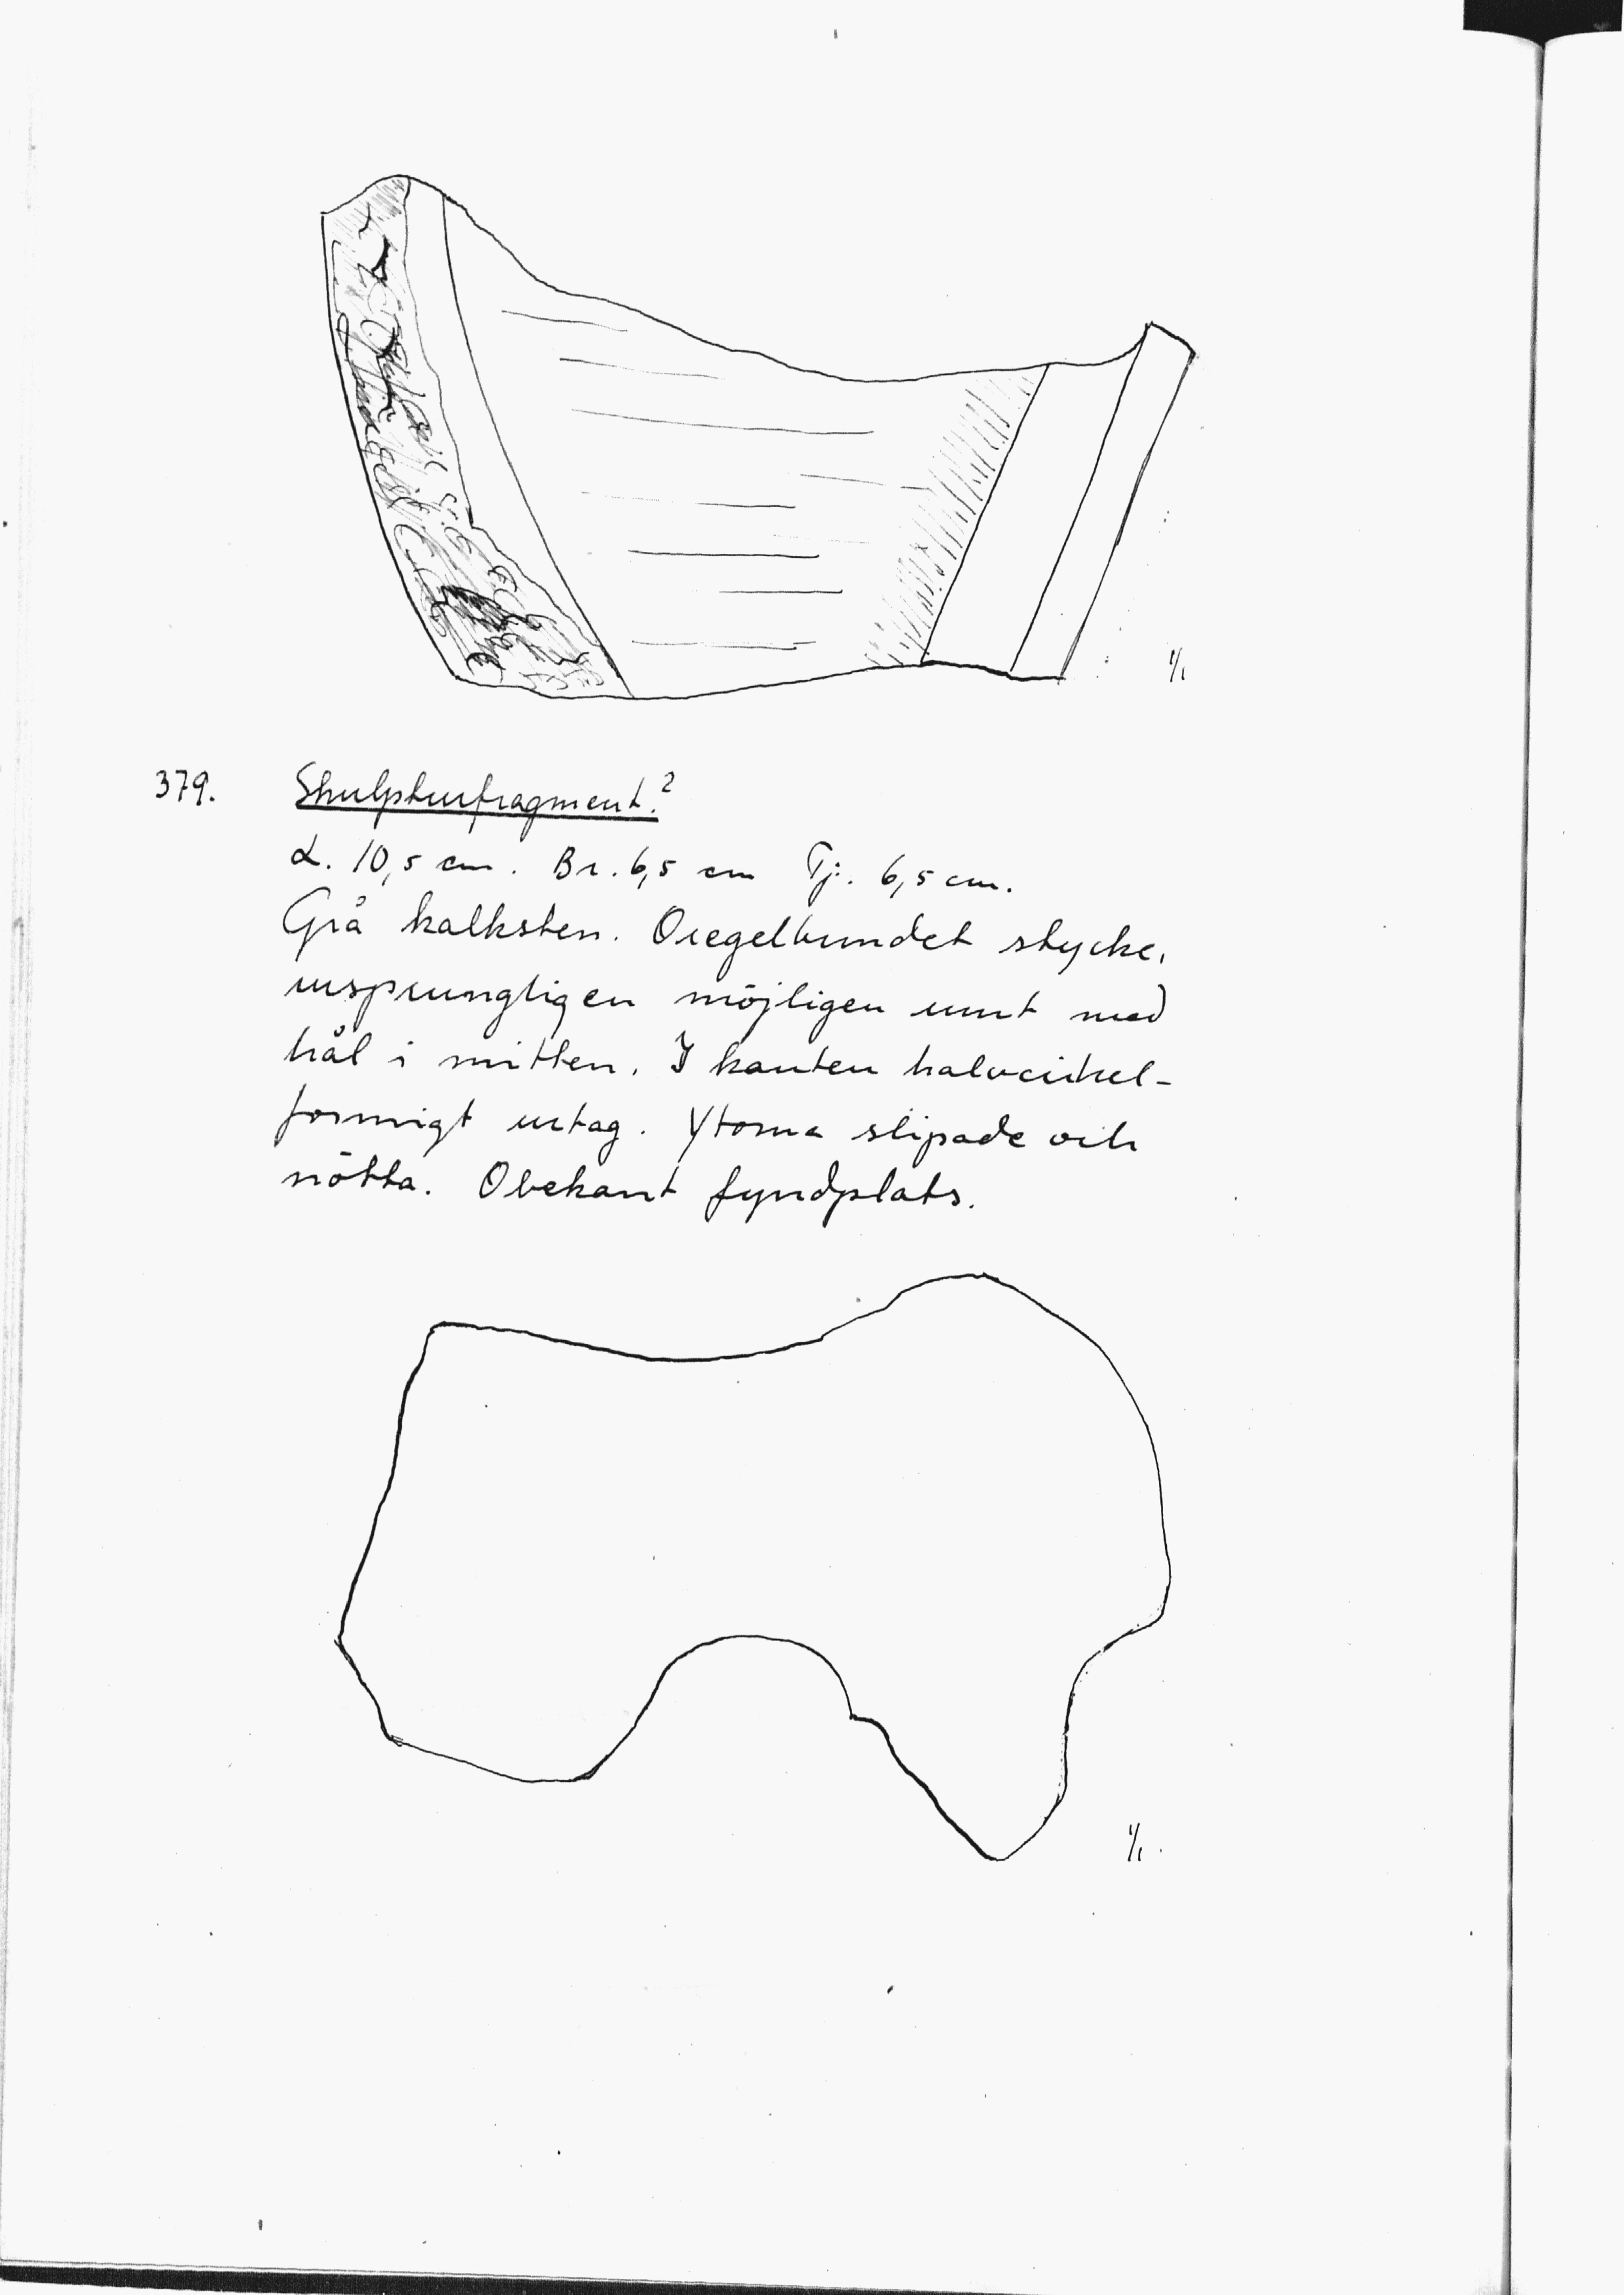 1/1
379. Skulpturfragment.?
L. 10,5 cm. Br. 6,5 cm Tj. 6,5 cm.
Grå kalksten. Oregelbundet stycke,
ursprungligen möjligen runt med
hål i mitten. I kanten halvcirkel-
formigt urtag. Ytorna slipade och
nötta. Obekant fyndplats.
1/1.